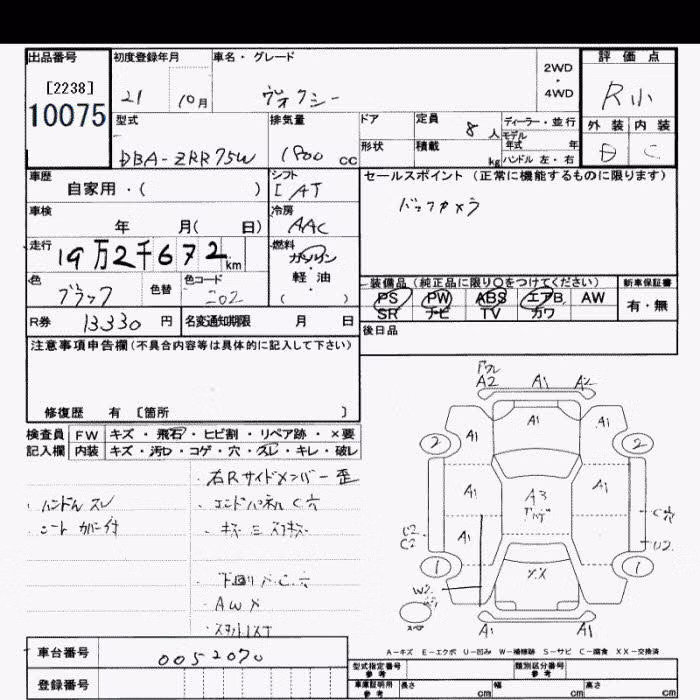 出品番号 初度登録年月 車名・グレード 評価点
[2238] 21 10月 ヴォクシー 2WD・4WD R小
10075
型式 排気量 ドア 定員 8人 ディーラー・並行 外装 内装
DBA-ZRR75W 1800cc 形状 積載 kg モデル年式 年 C
ハンドル 左・右
車歴 シフト セールスポイント(正常に機能するものに限ります)
自家用・( ) I AT バックカメラ
車検 冷房
年 月( 日) AAC
走行 燃料
19万2千672km ガソリン・軽油( )
色 色替 色コード 装備品(純正品に限り○をつけてください) 新車保証書
ブラック 202 PS PW ABS エアB AW 有・無
SR ナビ TV カワ
R券 13330円 名変通知期限 月 日 後日品
注意事項申告欄(不具合内容等は具体的に記入して下さい)
修復歴 有 〔箇所 〕
検査員 FW キズ・飛石・ヒビ割・リペア跡・×要
記入欄 内装 キズ・汚れ・コゲ・穴・スレ・キレ・破レ
・右Rサイドメンバー歪
・ハンドルスレ ・エンドパネルC穴
・シートカバー付
・下回りC穴
・AW×
A2 A1 A2
A1 A1 A1
2 2
A1 A3 A1
A1
C穴
U2 C2 U2
1 XX 1
W2
スペア
A1 A1
A-キズ E-エクボ U-凹み W-補修跡 S-サビ C-腐食 XX-交換済
車台番号 0052070
登録番号
型式指定番号 参考 類別区分番号 参考
車庫証明用 参考 長さ cm 幅 cm 高さ cm